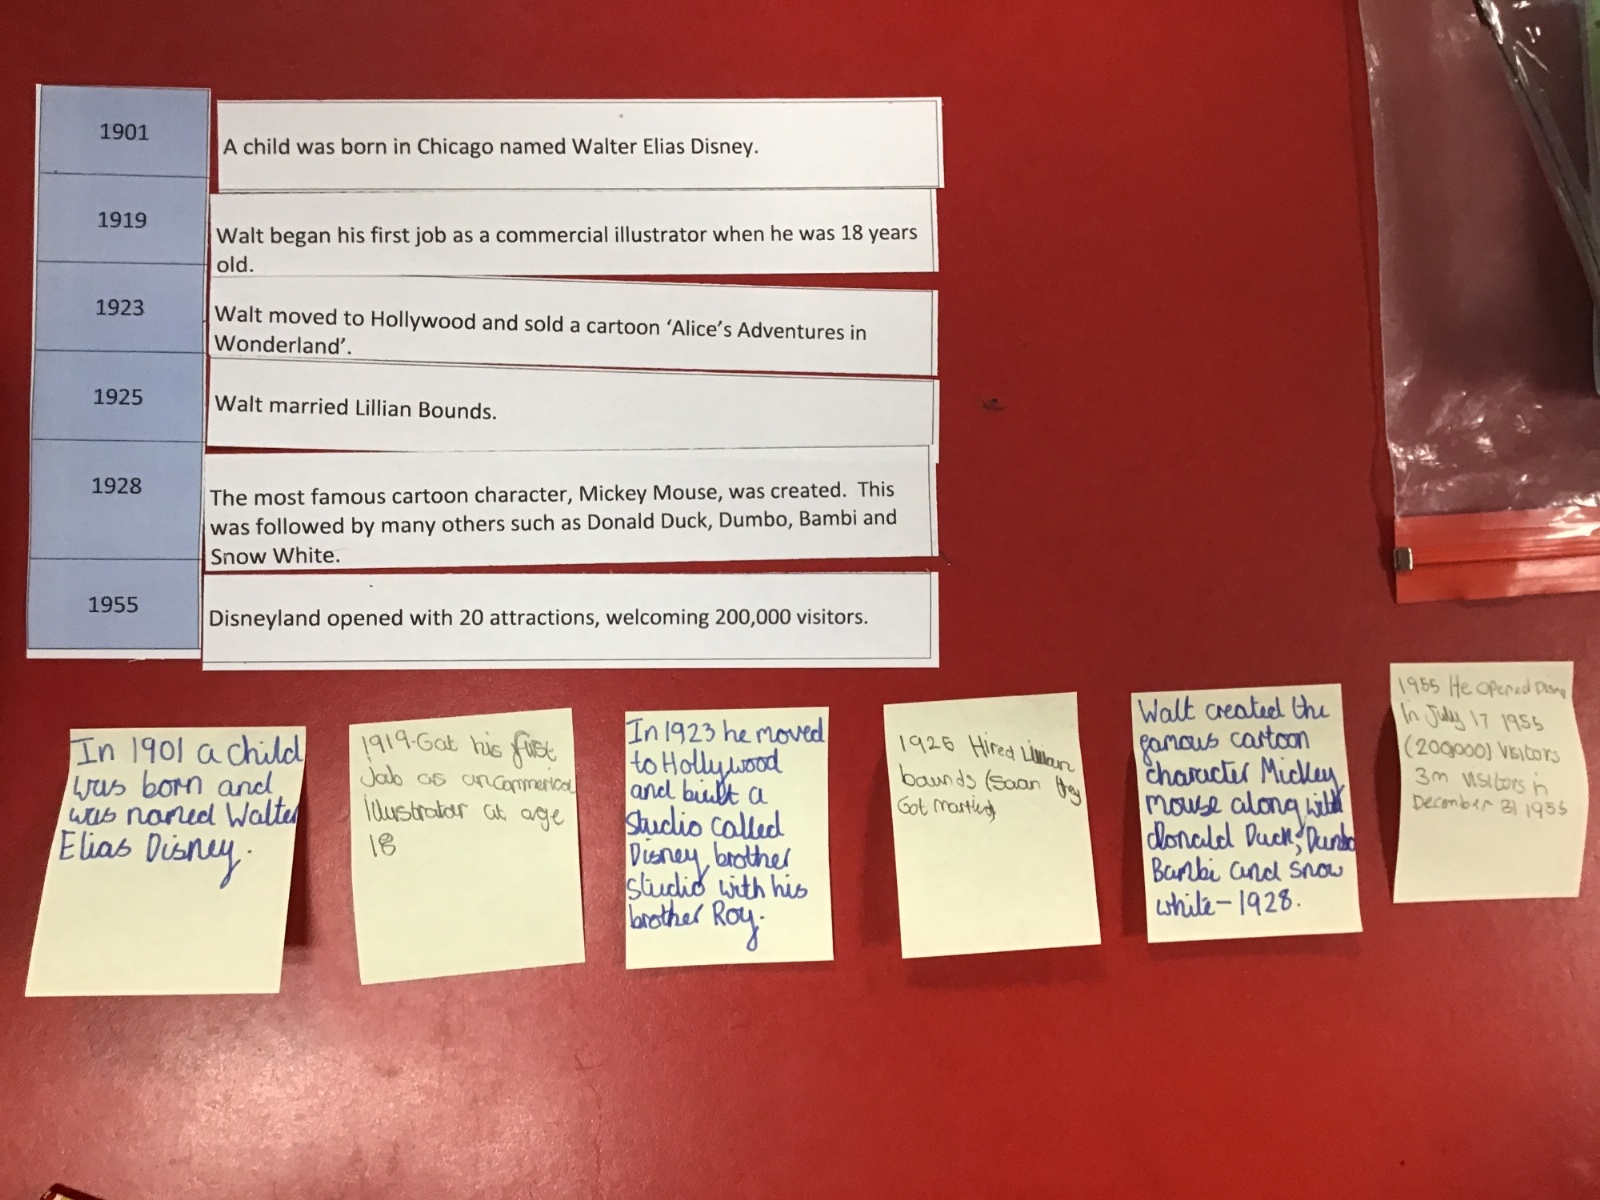 1901
A child was born in Chicago named Walter Elias Disney.
1919
Walt began his first job as a commercial illustrator when he was 18 years
old.
1923
Walt moved to Hollywood and sold a cartoon ‘Alice’s Adventures in
Wonderland’.
1925
Walt married Lillian Bounds.
1928
The most famous cartoon character, Mickey Mouse, was created. This
was followed by many others such as Donald Duck, Dumbo, Bambi and
Snow White.
1955
Disneyland opened with 20 attractions, welcoming 200,000 visitors.
In 1901 a child
was born and
was named Walter
Elias Disney.
1919-Got his first
Job as an Commerical
Illustrator at age
18
In 1923 he moved
to Hollywood
and built a
studio called
Disney brother
studio with his
brother Roy.
1925 Hired Lillian
bounds (Soon they
Got married)
Walt created the
famous cartoon
character Mickey
mouse along with
donald Duck, Dumbo
Bambi and snow
white - 1928.
1955 He opened Disney
In July 17 1955
(200000) Visitors
3m Visitors in
December 31 1955